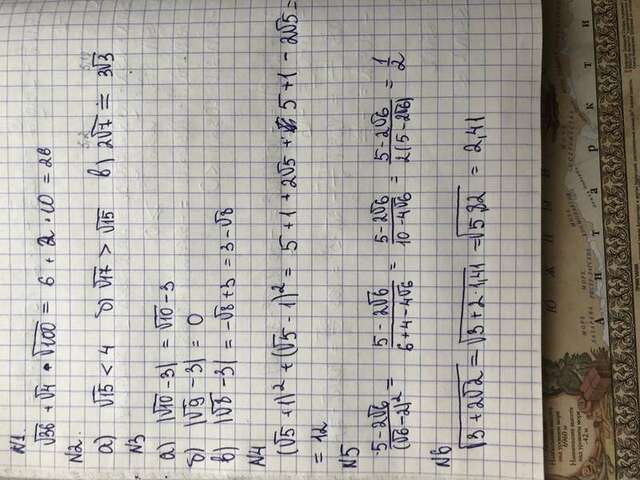 N1.
√36 + √4 • √100 = 6 + 2 · 10 = 26
N2.
а) √15 < 4 б) √17 > √15 в) 2√7 = 3√3
N3
а) |√10 - 3| = √10 - 3
б) |√9 - 3| = 0
в) |√8 - 3| = -√8 + 3 = 3 - √8
N4
(√5 + 1)² + (√5 - 1)² = 5 + 1 + 2√5 + 5 + 1 - 2√5 =
= 12
N5
5 - 2√6 / (√6 - 2)² = 5 - 2√6 / 6 + 4 - 4√6 = 5 - 2√6 / 10 - 4√6 = 5 - 2√6 / 2(5 - 2√6) = 1/2
N6
√3 + 2√2 = √3 + 2 · 1,41 = √5,82 = 2,41
Ю Ж Н Ы
Наибольшая высота
над уровнем моря
6960 м
Наименьшая высота
над уровнем моря
-42 м
МОРЕ
А н т а р к т и
ПРИМЕЧАНИЯ